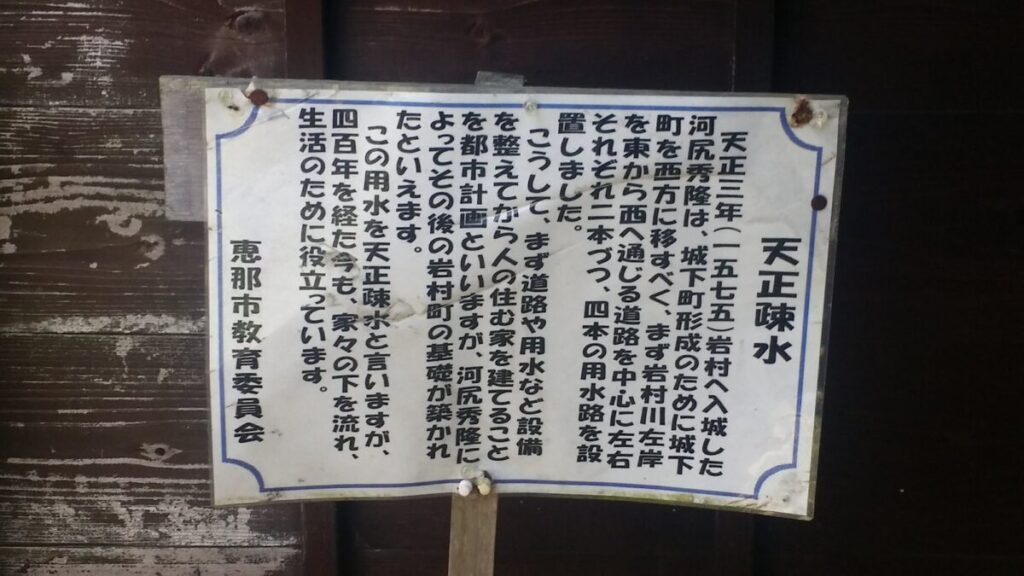 天正疎水
天正三年(一五七五)岩村へ入城した
河尻秀隆は、城下町形成のために城下
町を西方に移すべく、まず岩村川左岸
を東から西へ通じる道路を中心に左右
それぞれ二本づつ、四本の用水路を設
置しました。
こうして、まず道路や用水など設備
を整えてから人の住む家を建てること
を都市計画といいますが、河尻秀隆に
よってその後の岩村町の基礎が築かれ
たといえます。
この用水を天正疎水と言いますが、
四百年を経た今も、家々の下を流れ、
生活のために役立っています。
恵那市教育委員会